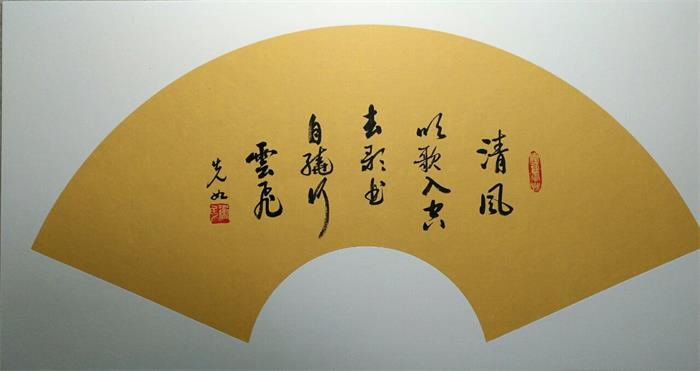 清风
吹歌入空
去歌曲
自繞行
雲飛
先如